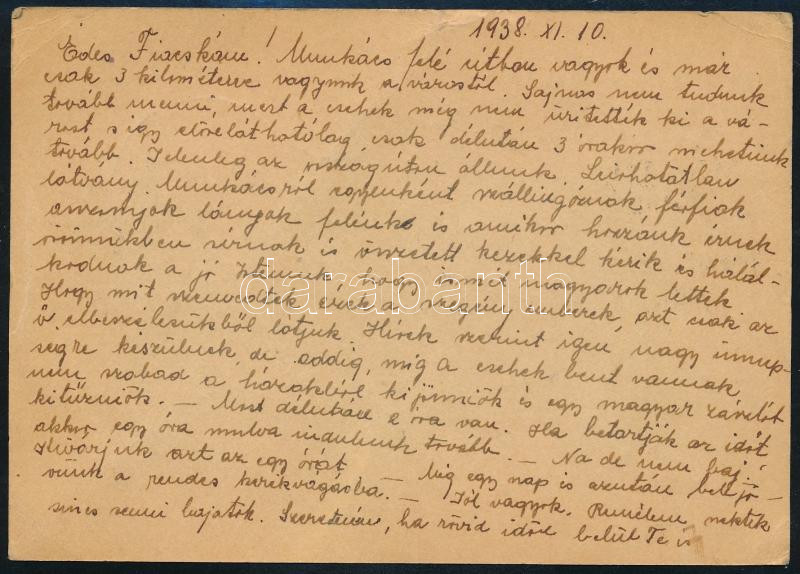 1938. XI. 10.
Édes Fiacskám! Munkács felé útban vagyok és már
csak 3 kilométerre vagyunk a várostól. Sajnos nem tudunk
tovább menni, mert a csehek még nem ürítették ki a vá-
rost s így előreláthatólag csak délután 3 órakor mehetünk
tovább. Jelenleg az országúton állunk. Leírhatatlan
látvány. Munkácsról egyenként szállingóznak, férfiak
asszonyok lányok felénk és amikor hozzánk érnek
örömükben sírnak és összetett kezekkel kérik és hálál-
kodnak a jó Istennek, hogy ismét magyarok lettek
Hogy mit szenvedtek ezek a szegény emberek, azt csak az
ő elbeszélésükből látjuk. Hírek szerint igen nagy ünnep-
ségre készülnek, de addig, míg a csehek bent vannak,
nem szabad a házakból kijönniök és egy magyar zászlót
kitűzniök. – Most délután 2 óra van. Ha betartják az időt
akkor egy óra mulva indulunk tovább. – Na de nem baj,
Kivárjuk azt az egy órát – Míg egy nap is azután bele jö-
vünk a rendes kerékvágásba. – Jól vagyok. Remélem nektek
sincs semmi bajatok. Szeretném, ha rövid időn belül Te is
darabanth